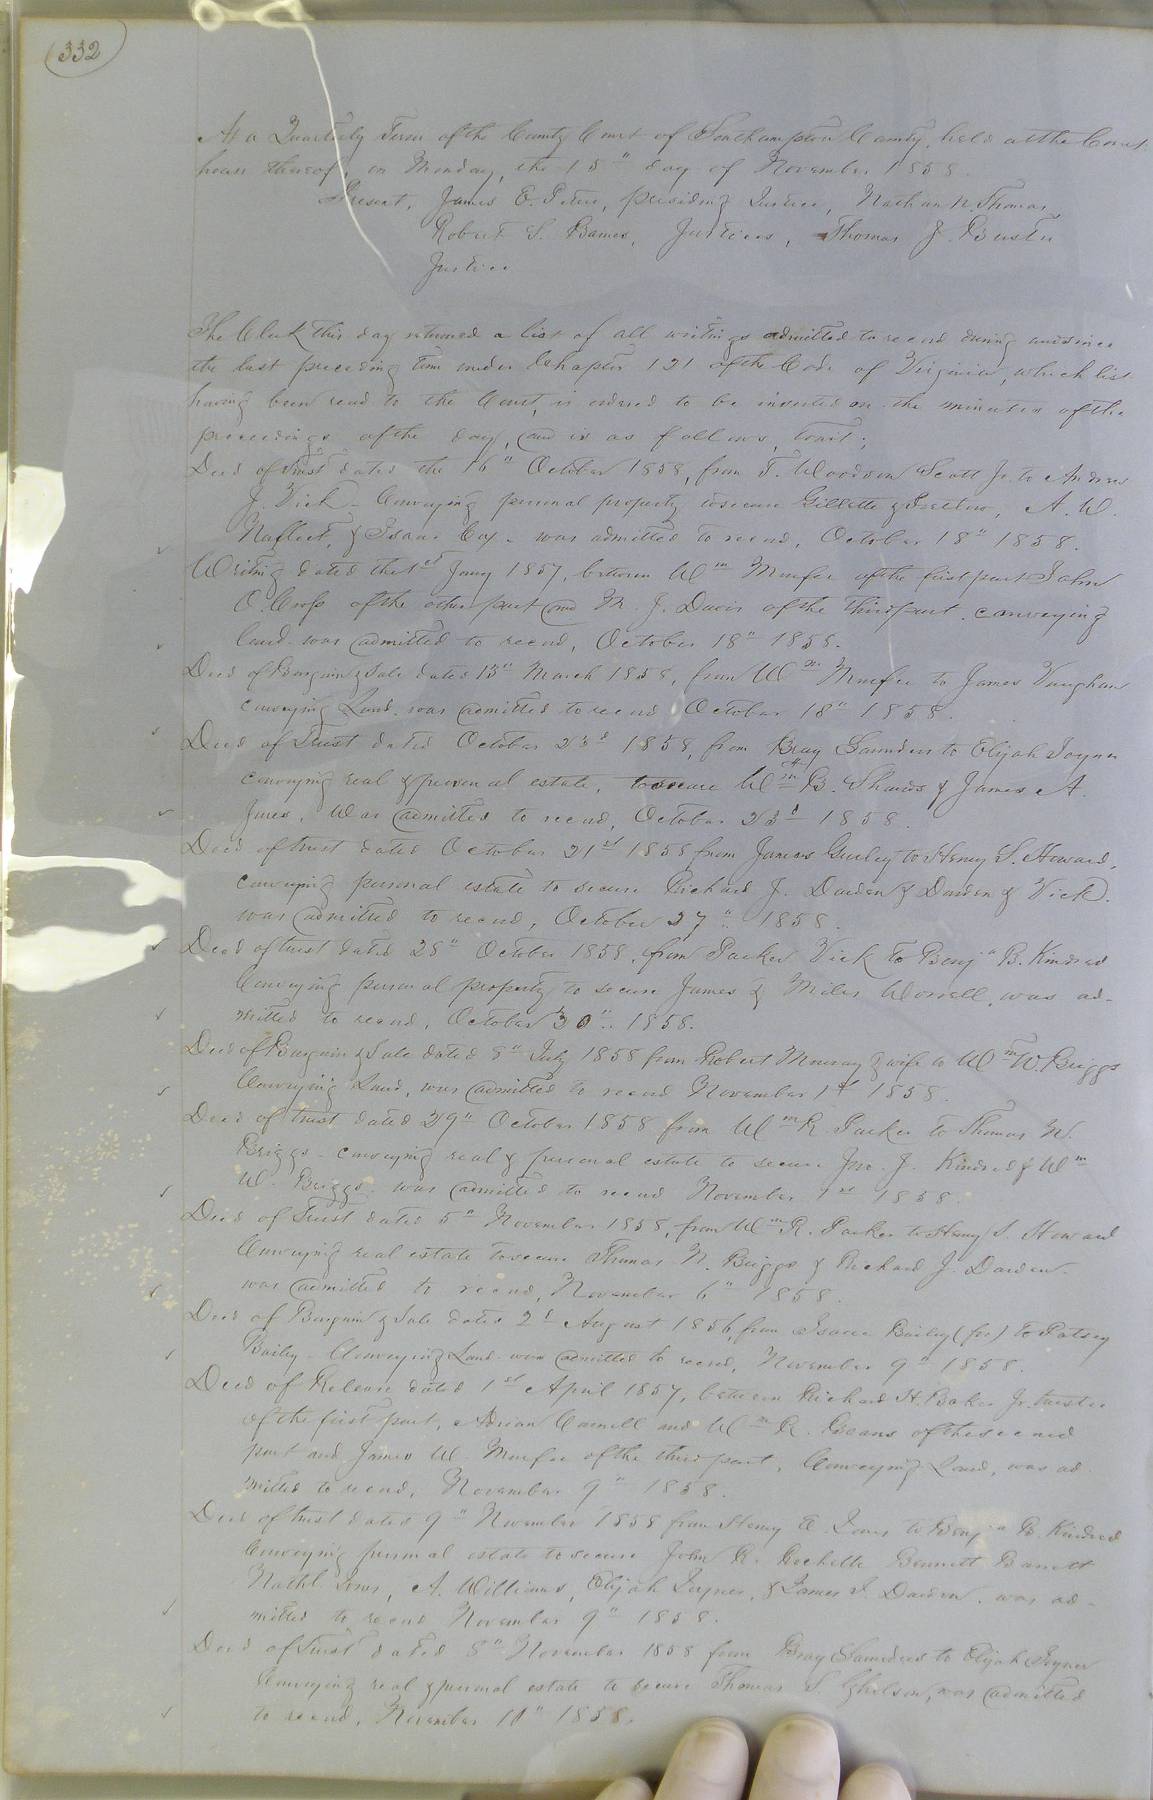 332
At a Quarterly Term of the County Court of Southampton County, held at the Court
house thereof, on Monday, the 15" day of November 1858.
Present, James E. Peters, presiding Justice, Nathan N. Thomas,
Robert S. Barnes, Justices, Thomas J.
Justice
The Clerk this day returned a list of all writings admitted to record during and since
the last preceding term under Chapter 121 of the Code of Virginia, which list
having been read to the Court, is ordered to be inserted on the minutes of the
proceedings of the day, and is as follows, towit;
Deed of Trust dated the 16" October 1858, from T. Woodson Scott Jr. to Andrew
J. Vick - Conveying personal property to secure Gillette & Pretlow, A. W.
Norfleet, & Isaac Coy - was admitted to record, October 18" 1858.
Writing dated the 1st Jany 1857, between Wm Murfee of the first part John
O. Cross of the other part and M. J. Davis of the third part, conveying
land was admitted to record, October 18" 1858.
Deed of Bargain & Sale dated 15" March 1858, from Wm Murfee to James Vaughan
conveying Land. was admitted to record October 18" 1858.
Deed of Trust dated October 23d 1858, from Bray Saunders to Elijah Joyner
conveying real & personal estate, to secure Wm B. Shands & James A.
Jones, was admitted to record, October 23d 1858.
Deed of trust dated October 21st 1858 from James Gurley to Henry S. Howard,
conveying personal estate to secure Richard J. Darden & Darden & Vick.
was admitted to record, October 27" 1858.
Deed of trust dated 28" October 1858, from Parker Vick to Benja B. Kindred
Conveying personal property to secure James & Miles Worrell, was ad-
mitted to record, October 30" 1858.
Deed of Bargain & Sale dated 8" July 1858 from Robert Murray & wife to Wm W. Briggs
Conveying Land, was admitted to record November 1st 1858.
Deed of trust dated 29" October 1858 from Wm R. Parker to Thomas N.
Briggs - conveying real & personal estate to secure Jno. J. Kindred & Wm
W. Briggs. was admitted to record November 1st 1858.
Deed of Trust dated 5" November 1858, from Wm R. Parker to Henry S. Howard
Conveying real estate to secure Thomas N. Briggs & Richard J. Darden -
was admitted to record, November 6" 1858.
Deed of Bargain & Sale dated 2d August 1856, from Isaac Bailey (fn) to Patsey
Bailey - Conveying Land was admitted to record, November 9" 1858.
Deed of Release dated 1st April 1857, between Richard H. Baker Jr. trustee
of the first part, Adrian Carnell and Wm R. Beans of the second
part and James W. Murfee of the third part, Conveying Land, was ad
mitted to record, November 9" 1858.
Deed of trust dated 9" November 1858 from Henry E. Jones to Benja B. Kindred
Conveying personal estate to secure John R. Rochelle Bennett Barrett
Nathl Jones, A. Williams, Elijah Joyner, & James S. Darden, was ad-
mitted to record November 9" 1858.
Deed of Trust dated 8" November 1858 from Bray Saunders to Elijah Joyner
Conveying real & personal estate to secure Thomas S. Gholson, was admitted
to record, November 10" 1858.